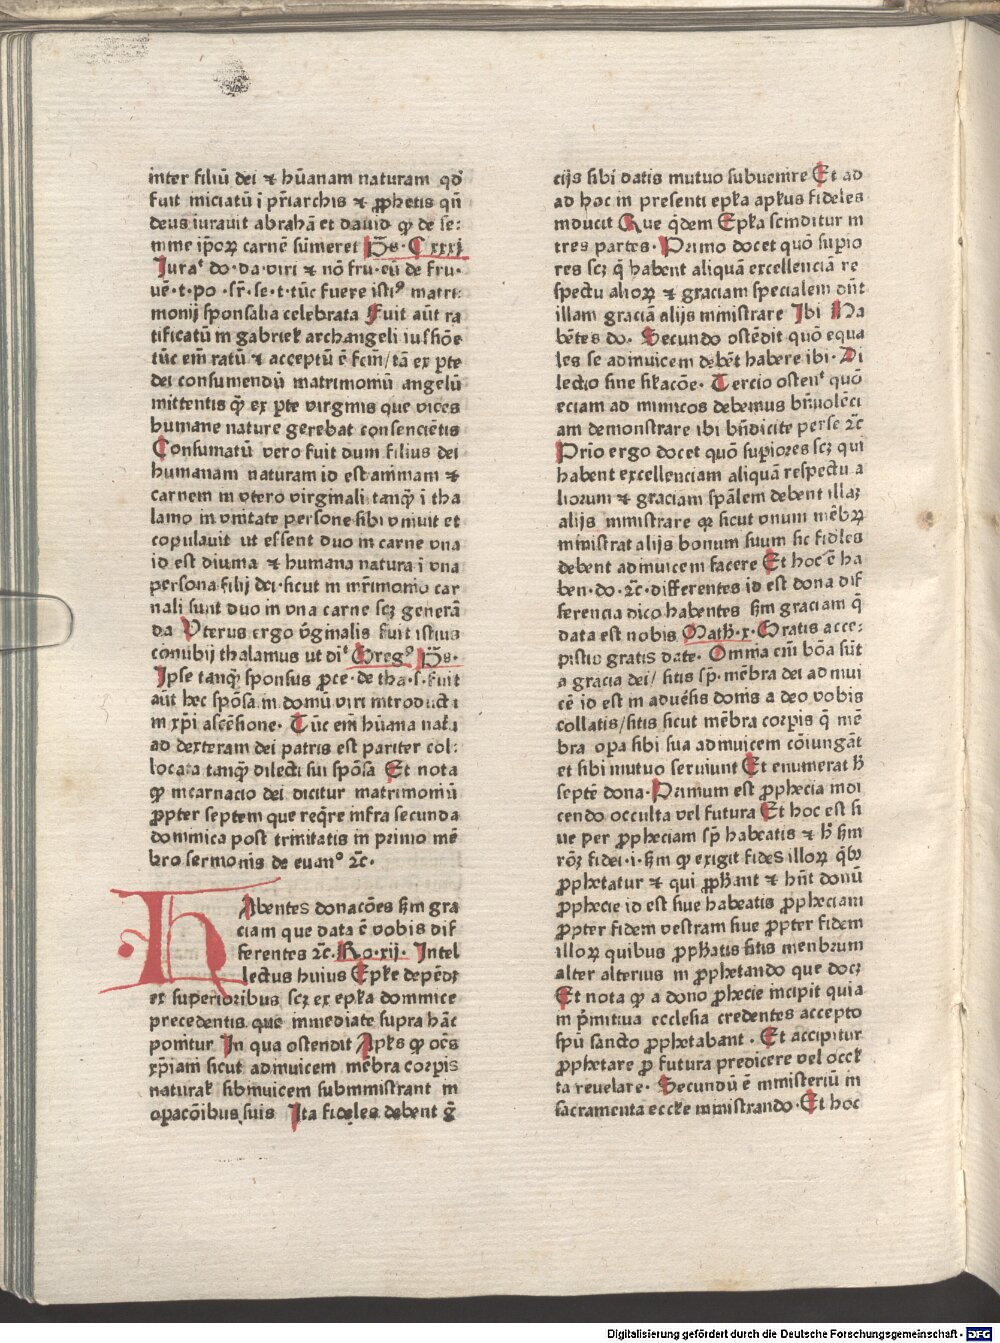 inter filiū dei ⁊ hūanam naturam qď
fuit iniciatū ī pr̄iarchis ⁊ ꝓphetis qn̄
deus iurauit abrahā et dauid ꝙ de se⸗
mine ip̄oꝝ carnē sūmeret Ps. Cxxxj
Iuraᵗ do·da·viri ⁊ nō fru·eū de fru·
uē·t·po·sr̄·se·t·tūc fuere istiꝰ matri⸗
monij sponsalia celebrata Fuit aūt ra
tificatū in gabriel archangeli iussiōe
tūc em̄ ratū ⁊ acceptū ē fcm̄/tā ex pte
dei consumendū matrimoniū angelū
mittentis ꝙ̄ ex pte virginis que vices
humane nature gerebat consenciētis
Consumatū vero fuit dum filius dei
humanam naturam id est animam ⁊
carnem in vtero virginali tanqꝫ ī tha
lamo in vnitate persone sibi vniuit et
copulauit ut essent duo in carne vna
id est diuina ⁊ humana natura ī vna
persona filij dei·sicut in mr̄imonio car
nali sunt duo in vna carne scꝫ generā
da Vterus ergo v̄ginalis fuit istius
conubij thalamus ut diᵗ Gregꝰ Ps.
Ipse tanqꝫ sponsus pce·de tha·s·fuit
aūt hec spōsa in domū viri introducti
in xp̄i ascēsione. Tūc em̄ hūana natu
ad dexteram dei patris est pariter col⸗
locata tanqꝫ dilecti sui spōsa Et nota
ꝙ incarnacio dei dicitur matrimoniū
ꝓpter septem que reqͥre infra secunda
dominica post trinitatis in primo mē
bro sermonis de euanº ⁊c̄.
HAbentes donacōes ẜm gra
ciam que data ē vobis dif
ferentes ⁊c̄. Ro.xij. Intel
lectus huius Epl̄e depēdꝫ
ex superioribus scꝫ ex epl̄a dominice
precedentis que inmediate supra hāc
ponitur In qua ostendit Apl̄s ꝙ oēs
xp̄iam sicut adinuicem mēbra corpis
natural sibinuicem subministrant in
opacōibus suis Ita fideles debent ḡ
cijs sibi datis mutuo subuenire Et ad
ad hoc in presenti epl̄a apl̄us fideles
inducit Que qͥdem Epl̄a scinditur in
tres partes. Primo docet quō supio
res scꝫ q̄ habent aliquā excellenciā re
spectu alioꝝ ⁊ graciam specialem dn̄t
illam graciā alijs ministrare Ibi Ha
bētes do. Secundo ostēdit quō equa
les se adinuicem debēt habere ibi. Di
lectio sine sil̄acōe. Tercio ostenᵗ quō
eciam ad inimicos debemus bn̄uolēci
am demonstrare ibi bn̄dicite perse ⁊c̄
Prio ergo docet quō supiores scꝫ qui
habent excellenciam aliquā respectu a
liorum ⁊ graciam spālem debent illaꝫ
alijs ministrare qꝛ sicut vnum mēbꝝ
ministrat alijs bonum suum sic fideles
debent adinuicem facere Et hoc ē ha
ben·do·⁊c̄·differentes id est dona dif
ferencia dico habentes ẜm graciam q̄
data est nobis Math·x·Gratis acce⸗
pistis gratis date. Omnia em̄ bōa sūt
a gracia dei/ sitis sp̄·mēbra dei ad inui
cē id est in aduēsis donis a deo vobis
collatis/sitis sicut mēbra corpis q̄ mē
bra opa sibi sua adinuicem cōiungāt
et sibi mutuo seruiunt Et enumerat h̄
septē dona·Primum est ꝓphecia indi
cendo occulta vel futura Et hoc est si
ue per ꝓpheciam sp̄ habeatis ⁊ h̄ ẜm
rōꝫ fidei·i·ẜm ꝙ exigit fides illoꝝ qͥbꝫ
ꝓphetatur ⁊ qui ꝓph̄ant ⁊ hn̄t donū
ꝓphecie id est siue habeatis ꝓpheciam
ꝓpter fidem vestram siue ꝓpter fidem
illoꝝ quibus ꝓph̄atis sitis menbrum
alter alterius in ꝓphetando que docꝫ
Et nota ꝙ a dono ꝓhecie incipit quia
in pͥmitiua ecclesia credentes accepto
sp̄u sancto ꝓphetabant. Et accipitur
ꝓphetare ꝓ futura predicere vel occl̄
ta reuelare. Secundū ē ministeriū in
sacramenta eccl̄e ministrando. Et hoc
Digitalisierung gefördert durch die Deutsche Forschungsgemeinschaft - DFG